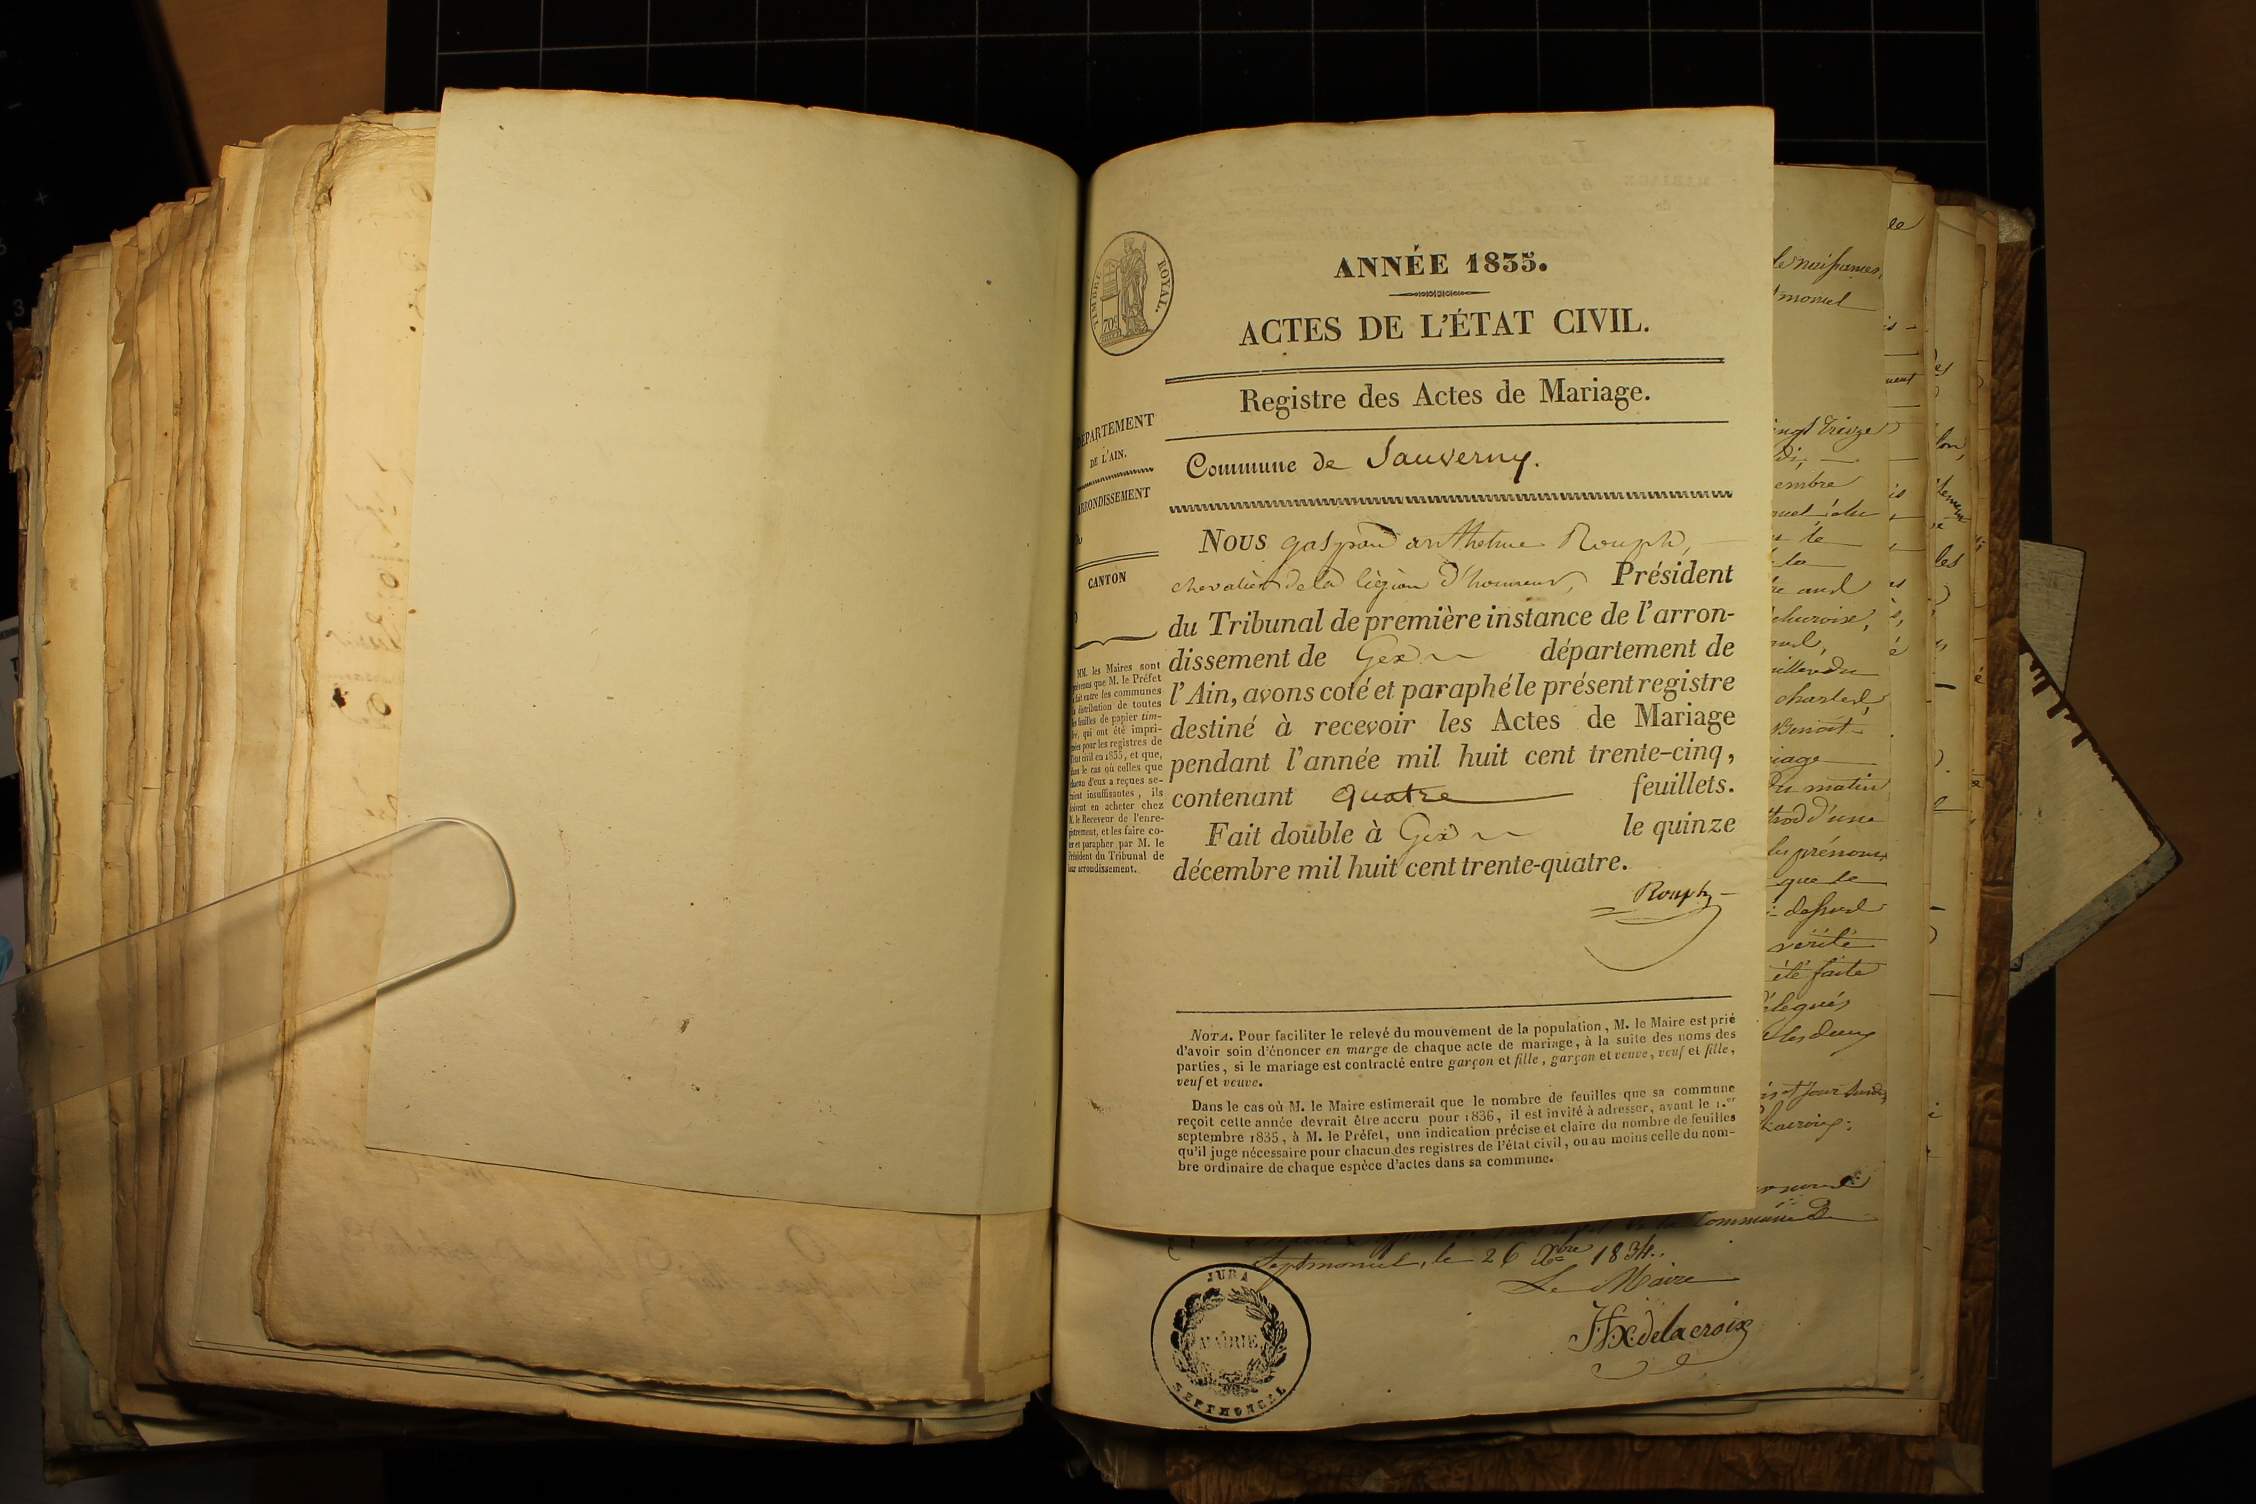 TIMBRE ROYAL.
70c
ANNÉE 1835.
ACTES DE L'ÉTAT CIVIL.
Registre des Actes de Mariage.
DÉPARTEMENT
DE L'AIN.
ARRONDISSEMENT
CANTON
MM. les Maires sont
prévenus que M. le Préfet
a fait entre les communes
la distribution de toutes
les feuilles de papier tim-
bré, qui ont été impri-
mées pour les registres de
l'état civil en 1835, et que,
dans le cas où celles que
chacun d'eux a reçues se-
raient insuffisantes, ils
doivent en acheter chez
M. le Receveur de l'enre-
gistrement, et les faire co-
ter et parapher par M. le
Président du Tribunal de
leur arrondissement.
Commune de Sauverny.
Nous gaspard anthelme Rouph,
chevalier de la légion d'honneur, Président
du Tribunal de première instance de l'arron-
dissement de Gex département de
l'Ain, avons coté et paraphé le présent registre
destiné à recevoir les Actes de Mariage
pendant l'année mil huit cent trente-cinq,
contenant quatre feuillets.
Fait double à Gex le quinze
décembre mil huit cent trente-quatre.
Rouph
NOTA. Pour faciliter le relevé du mouvement de la population, M. le Maire est prié
d'avoir soin d'énoncer en marge de chaque acte de mariage, à la suite des noms des
parties, si le mariage est contracté entre garçon et fille, garçon et veuve, veuf et fille,
veuf et veuve.
Dans le cas où M. le Maire estimerait que le nombre de feuilles que sa commune
reçoit cette année devrait être accru pour 1836, il est invité à adresser, avant le 1.er
septembre 1835, à M. le Préfet, une indication précise et claire du nombre de feuilles
qu'il juge nécessaire pour chacun des registres de l'état civil, ou au moins celle du nom-
bre ordinaire de chaque espèce d'actes dans sa commune.
de naissances,
embre
le
la
charles
Benoit
du matin
d'une
les prénoms
que le
vérité
été faite
les deux
la Commune de
Septmoncel, le 26 Xbre 1834.
Le Maire
delacroix
JURA
MAIRIE
SEPTMONCEL